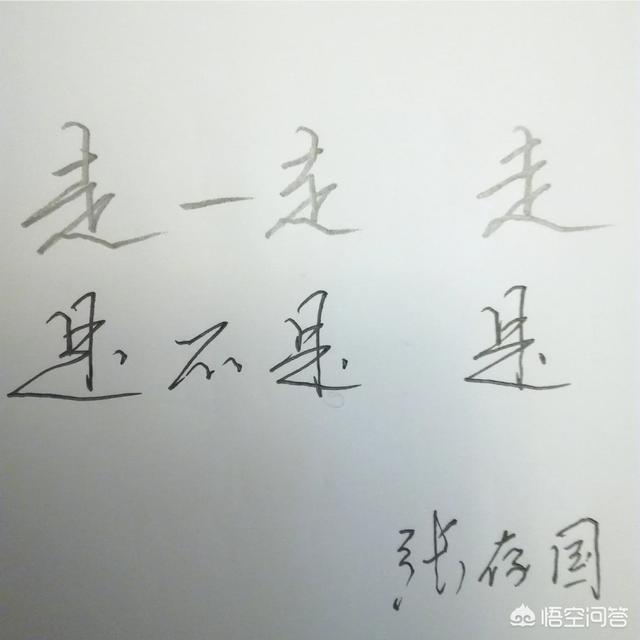 走一走 走
是不是 是
张存国
悟空问答